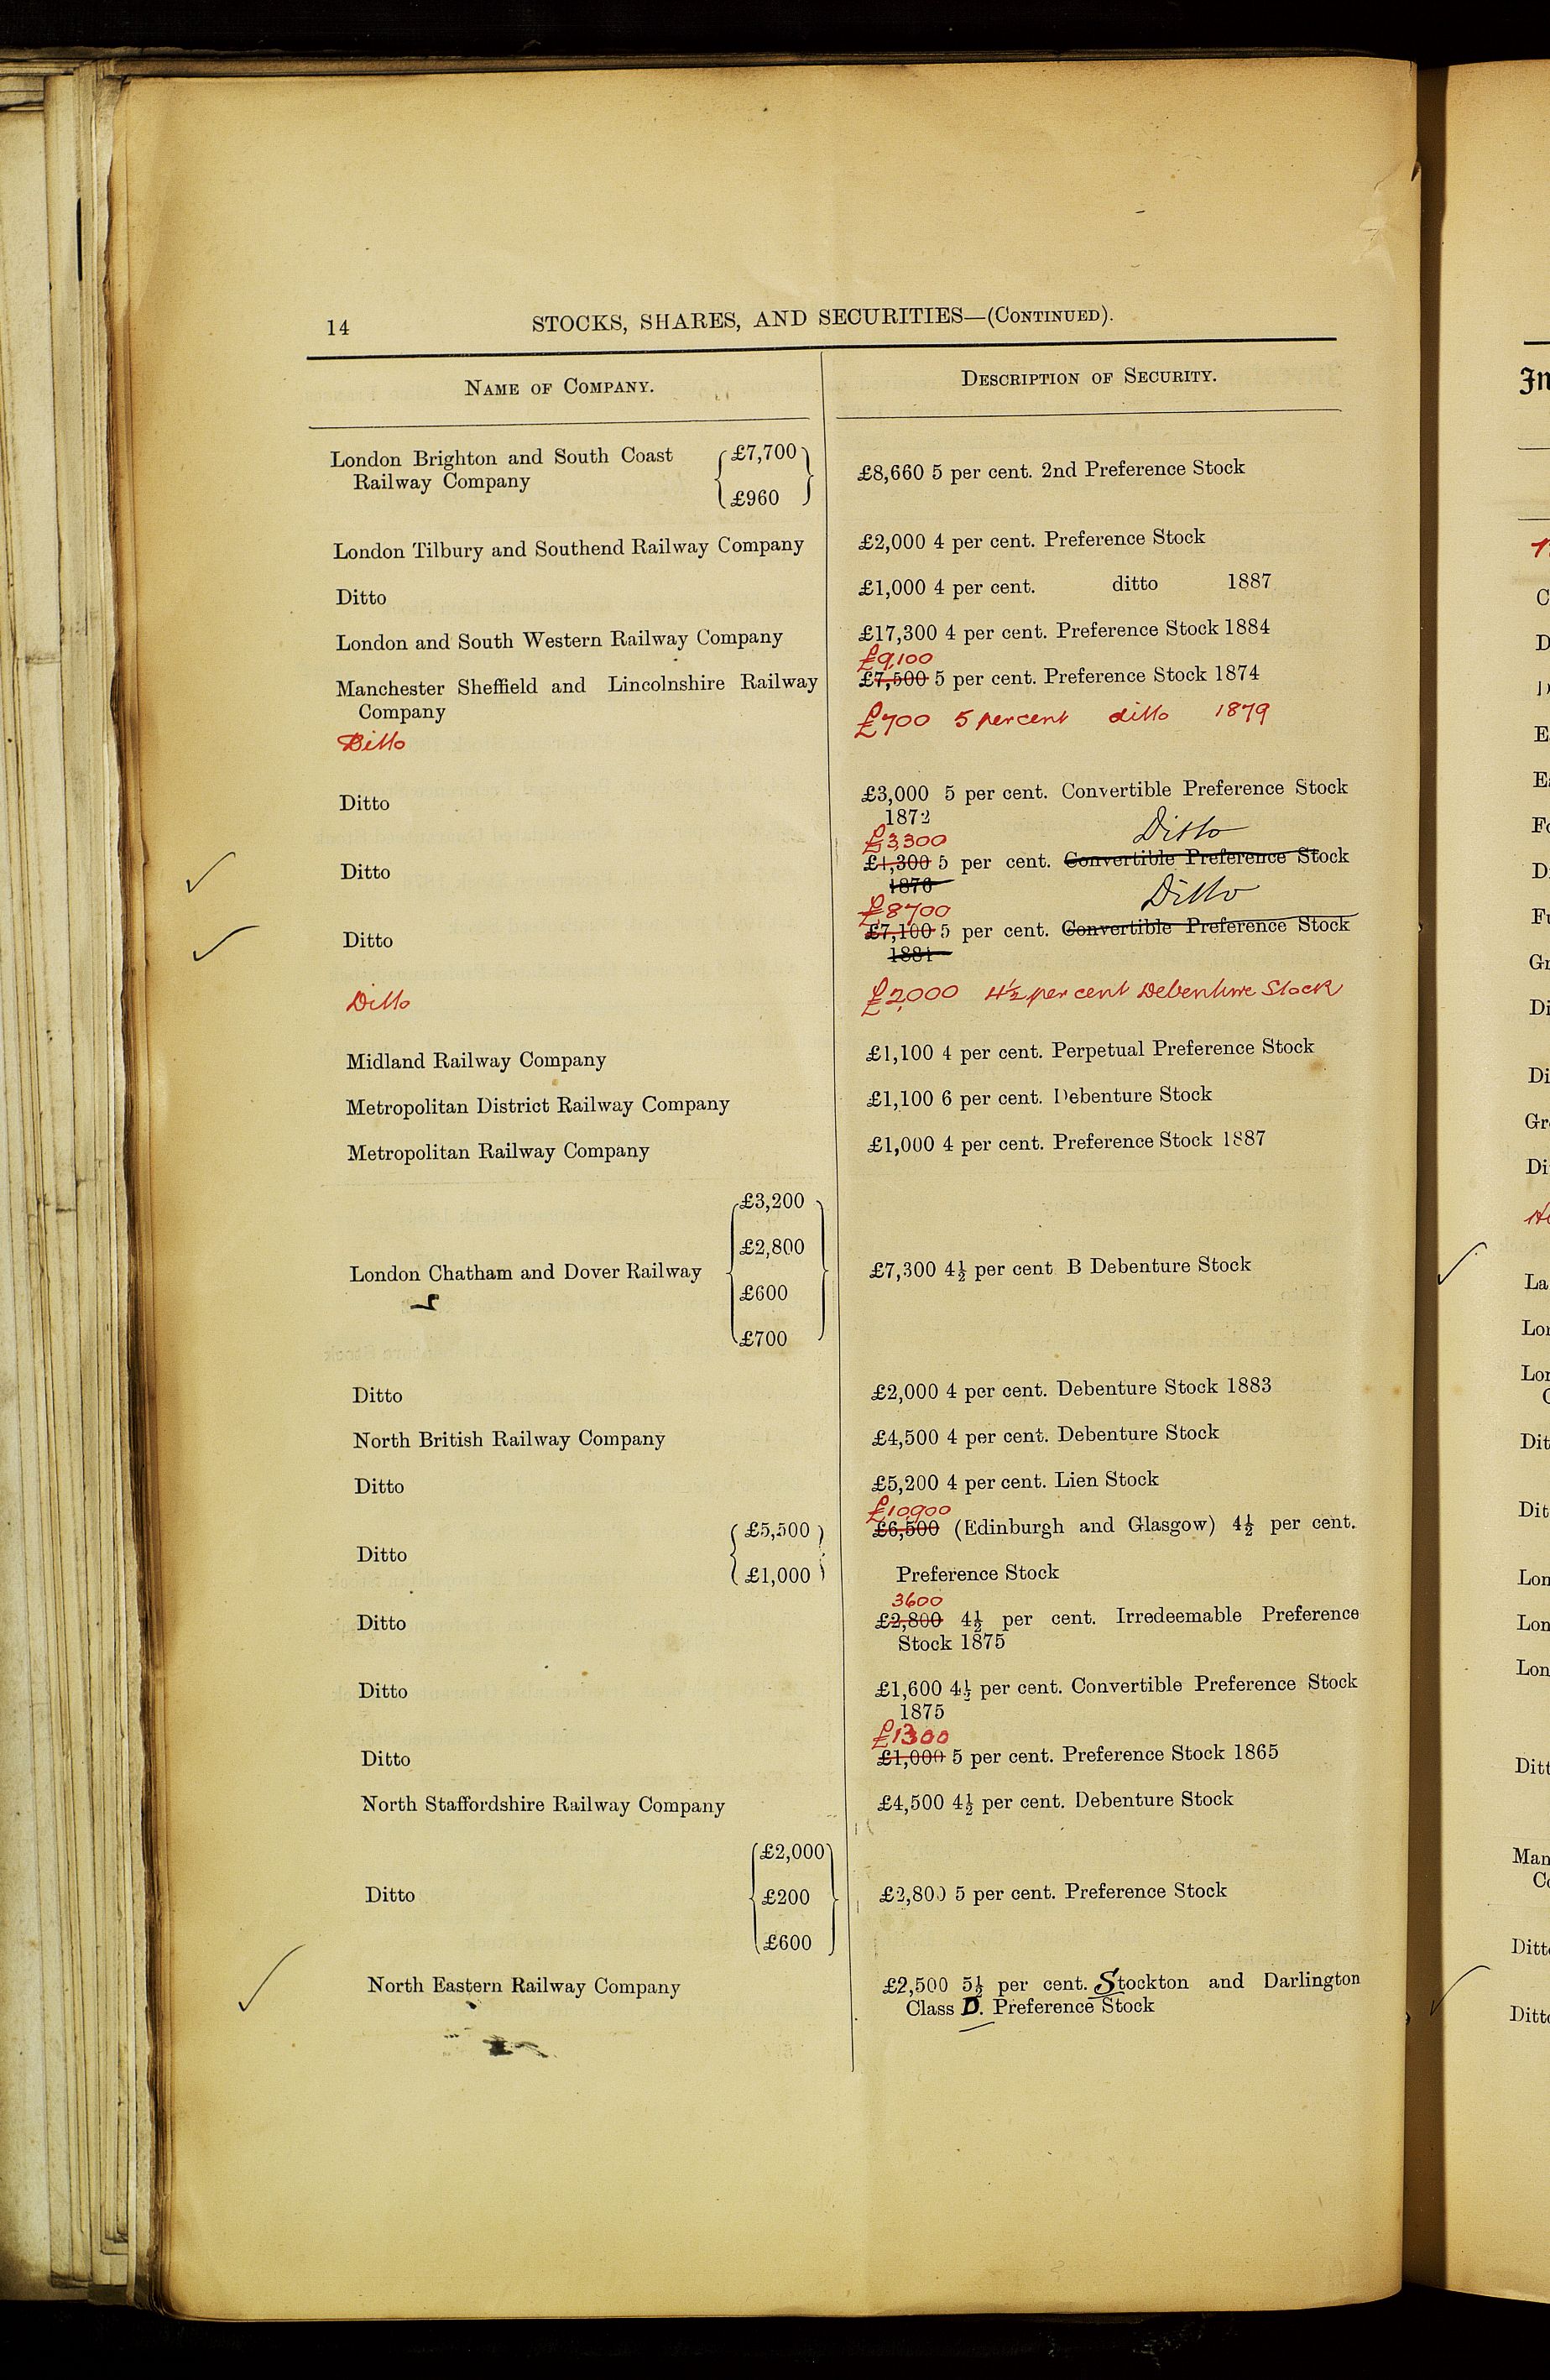 14
STOCKS, SHARES, AND SECURITIES—(CONTINUED).
NAME OF COMPANY.
DESCRIPTION OF SECURITY.
London Brighton and South Coast Railway Company
£7,700
£960
£8,660 5 per cent. 2nd Preference Stock
London Tilbury and Southend Railway Company
£2,000 4 per cent. Preference Stock
Ditto
£1,000 4 per cent. ditto 1887
London and South Western Railway Company
£17,300 4 per cent. Preference Stock 1884
£9,100
Manchester Sheffield and Lincolnshire Railway
Company
£7,500 5 per cent. Preference Stock 1874
Ditto
£700 5 per cent ditto 1879
Ditto
£3,000 5 per cent. Convertible Preference Stock
1872
£3,300
Ditto
Ditto
£1,300 5 per cent. Convertible Preference Stock
1876
£8700
Ditto
Ditto
£7,100 5 per cent. Convertible Preference Stock
1881
Ditto
£2,000 4½ per cent Debenture Stock
Midland Railway Company
£1,100 4 per cent. Perpetual Preference Stock
Metropolitan District Railway Company
£1,100 6 per cent. Debenture Stock
Metropolitan Railway Company
£1,000 4 per cent. Preference Stock 1887
London Chatham and Dover Railway
£3,200
£2,800
£600
£700
£7,300 4½ per cent B Debenture Stock
Ditto
£2,000 4 per cent. Debenture Stock 1883
North British Railway Company
£4,500 4 per cent. Debenture Stock
Ditto
£5,200 4 per cent. Lien Stock
£10,900
Ditto
£5,500
£1,000
£6,500 (Edinburgh and Glasgow) 4½ per cent.
Preference Stock
3600
Ditto
£2,800 4½ per cent. Irredeemable Preference
Stock 1875
Ditto
£1,600 4½ per cent. Convertible Preference Stock
1875
£1300
Ditto
£1,000 5 per cent. Preference Stock 1865
North Staffordshire Railway Company
£4,500 4½ per cent. Debenture Stock
Ditto
£2,000
£200
£600
£2,800 5 per cent. Preference Stock
North Eastern Railway Company
£2,500 5½ per cent. Stockton and Darlington
Class D. Preference Stock